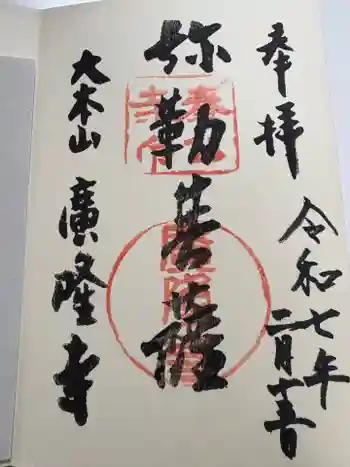 奉拝
令和七年
二月十五日
弥勒菩薩
大本山
廣隆寺